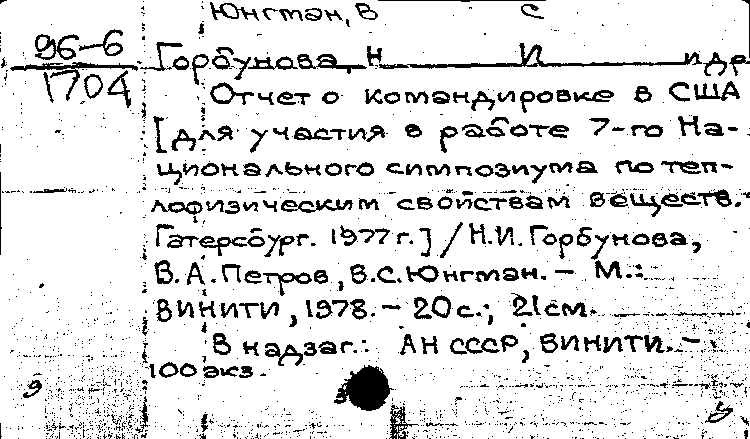 Юнгман, В С
96-6
Горбунова, Н И и др
1704
Отчет о командировке в США
[для участия в работе 7-го На-
ционального симпозиума по теп-
лофизическим свойствам веществ.
Гатерсбург. 1977 г.] / Н.И. Горбунова,
В.А. Петров, В.С. Юнгман. - М.:
ВИНИТИ, 1978. - 20 с.; 21 см.
В надзаг.: АН СССР, ВИНИТИ. -
100 экз.